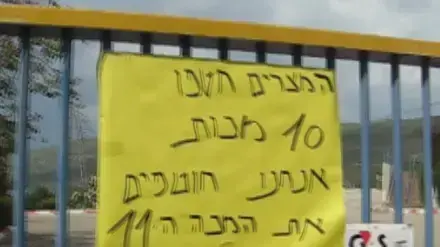 המצרים חטפו
10 מכות
אנחנו חוטפים
את המכה ה-11
G4S